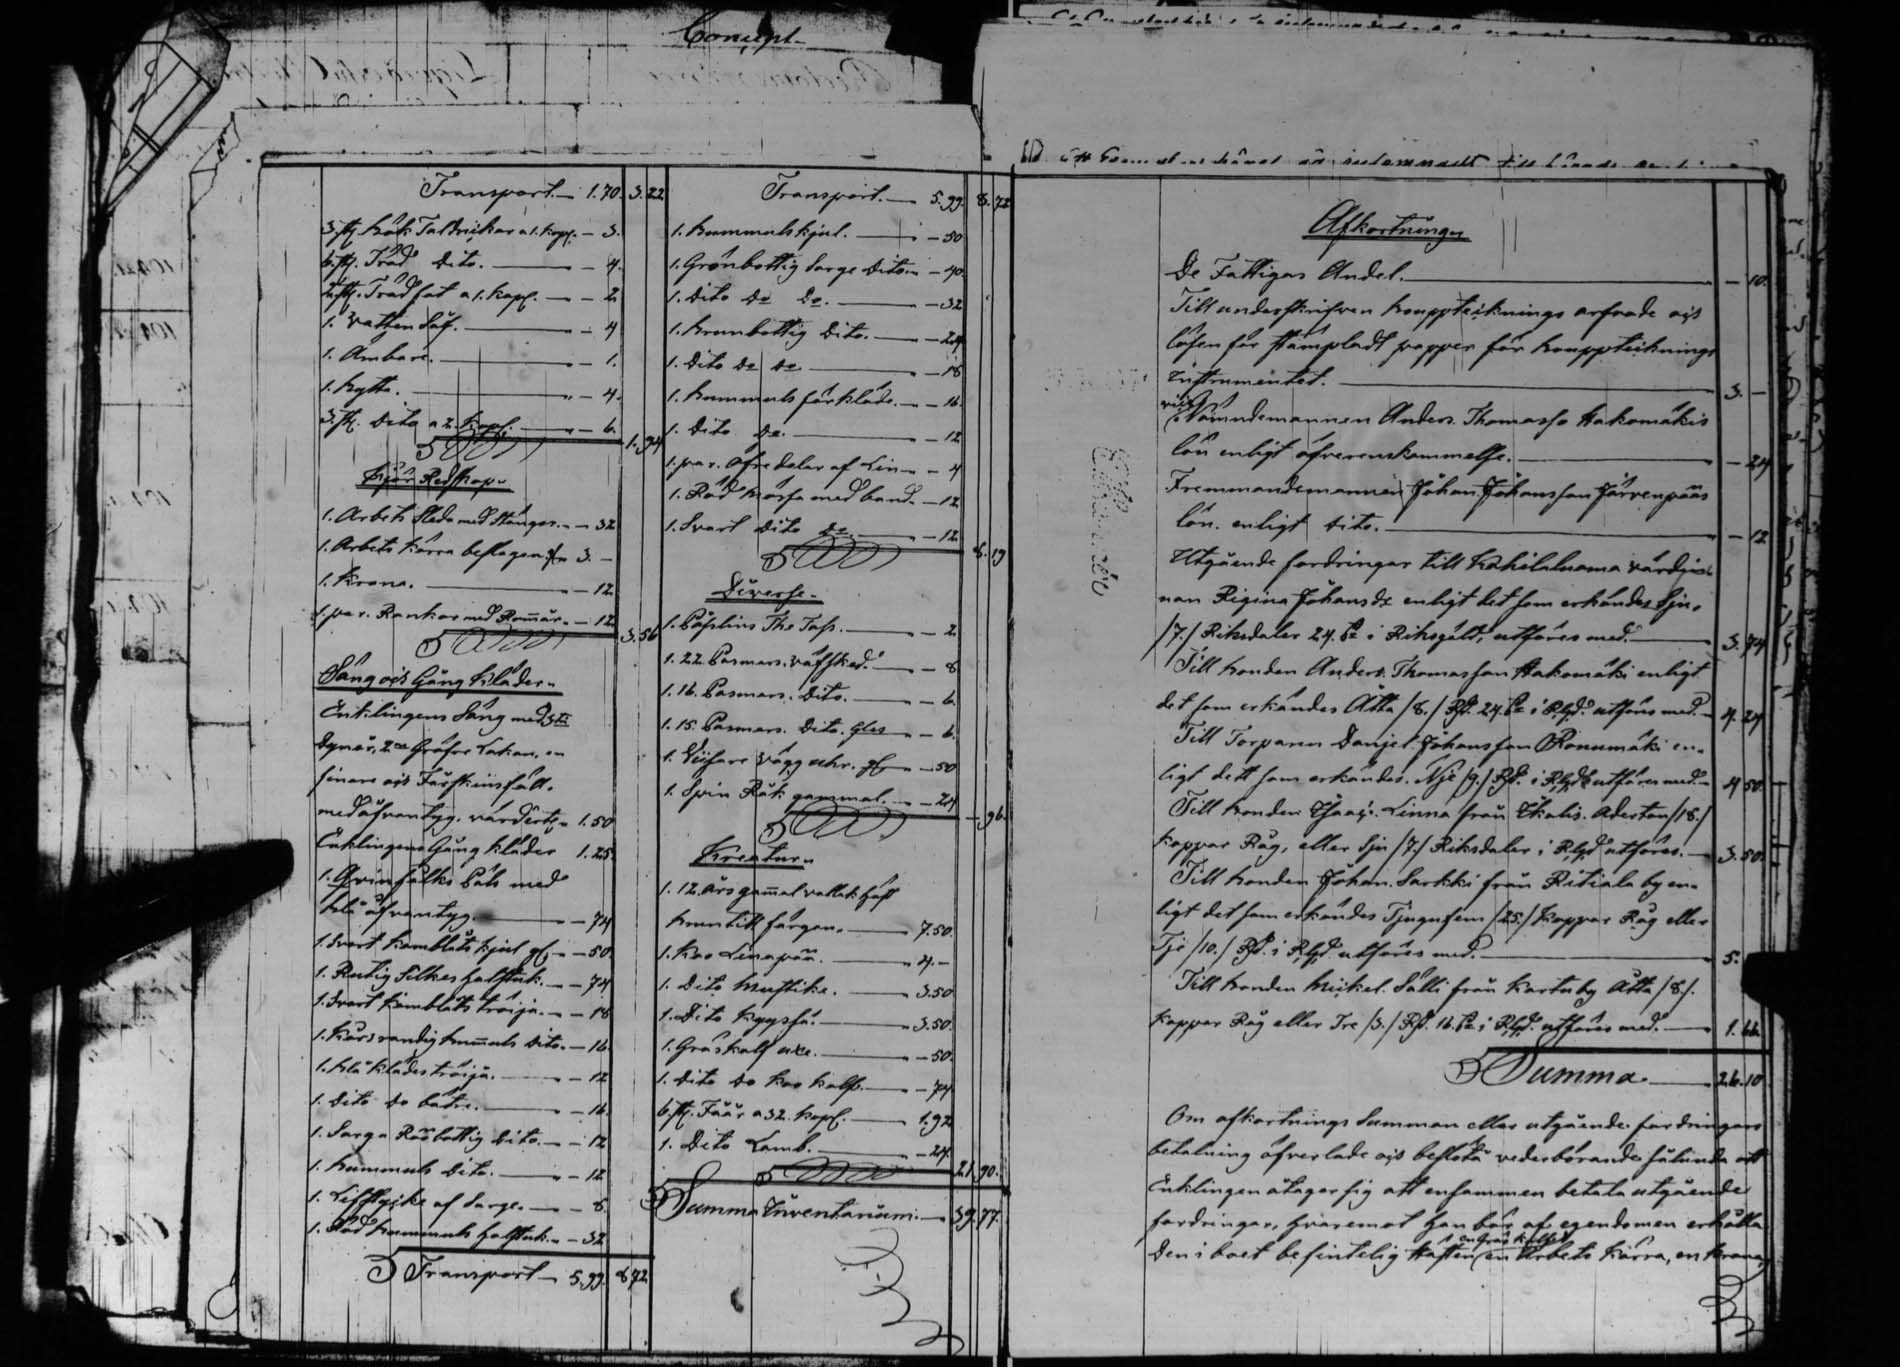 Concept
Transport. 1.70. 3.22
3. st. Talrickar a 1. kop. - 3.
6. st. Träd Dito. - 4.
2. st. Trädfat a 1. kop. - 2
1. vatten Så. - 4
1. Ämbare. - 1.
1. Bytta. - 4.
3. st. Dito a 2. kop. - 6.
1.94
Kjör Redskap.
1. Arbets Släda med Stänger. - 32
1. Arbets Kärra beslagen 3. -
1. Krona. - 12
1. par. Rankor med - 12
3.56
Säng och Gång kläder.
Enklingens Säng med
Dynor, 2ne Gröfre Lakan, en
finare och Fårskinsfäll.
med öfvantyg. värdert. 1.50
Enklingens Gång kläder 1.25.
1. Qvinfolks Päls med
blå öfvantyg. - 74
1. Svart Kamblåts kjol - 50.
1. Rutig Silkes halsduk. - 74
1. Svart Kamblåts tröija. - 18
1. randig Dito. - 16.
1. blå klädes tröija. - 12
1. Dito Do bätre. - 16.
1. Sarge Dito. - 12
1. Bummuls Dito. - 12
1. Lifstycke af Sarge. - 8.
1. Röd bummuls halsduk. - 32
Transport 5.99. 8.72
Transport. 5.99. 8.72
1. Bummuls kjol. - 50
1. Grönbottig Sarge Dito. - 40.
1. Dito Do Do. - 32
1. Brunbottig Dito. - 24
1. Dito Do Do - 18
1. Bummuls förkläde. - 16.
1. Dito Do. - 12
1. par. öfre delar af Lin - 4
1. Röd Mössa med band. - 12
1. Svart Dito Do - 12
8.19
Diverse.
1. Påslins The Tass. - 2.
1. 22. Pasmars. väfsked. - 8
1. 16. Pasmars. Dito. - 6.
1. 15. Pasmars. Dito. - 6.
1. Visare vägg uhr. - 50
1. Spin Råk gammal. - 24
- 96.
Kreatur.
1. 12. års gammal vallak häst
färgen. 7.50.
1. Ko Linapää. 4. -
1. Dito Mustike. 3.50
1. Dito 3.50.
1. kalf - 50.
1. Dito Do Ko kalf. - 74
6. st. Fåår a 32. kop. 1.92
1. Dito Lamb. - 24.
21.90.
Summa Inventarium. 39.77.
Afkortningar
De Fattigas Andel. - 10.
Till underskrifven bouppteknings arfvode och
lösen för stämpladt papper för bouppteknings
Instrumentet. 3. -
Nämndemannen Anders. Thomasson Hakomäkis
lön enligt öfverenskommelse. - 24
Fremmandemannen Johan Johansson Järvenpääs
lön. enligt Dito. - 12
Utgående fordringar till värdin-
nan Regina Johansdr enligt det som erkändes Sju,
/7./ Riksdaler 24. i Riksgäld, utföres med. 3.74
Till bonden Anders. Thomasson Hakomäki enligt
det som erkändes Åtta /8./ Rd. 24. i Rgd. utföres med. 4.24
Till Torparen Danjel. Johansson en-
ligt dett som erkändes. Nije /9./ Rd. i Rgd utföres med. 4.50.
Till bonden Linna från Ikalis. Aderton /18./
kappar Råg, eller Sju /7./ Riksdaler i Rgd utföres. 3.50.
Till bonden Johan. Sarkki från Ritiala by en-
ligt det som erkändes Tjugufem /25./ kappar Råg eller
Tije /10./ Rd. i Rgd. utföres med. 5.
Till bonden Mickel. Sälli från by Åtta /8./.
kappar Råg eller Tre /3./ Rd. 16. i Rgd. utföres med. 1.66.
Summa. 26.10
Om afkortnings Summan eller utgående fordringars
betalning öfverlade och beslöto vederbörande sålunda att
Enklingen åtager sig att ensammen betala utgående
fordringar, hvaremot han bör af egendomen erhålla
Den i boet befintelig Hästen en Arbets Kärra, en Krona,